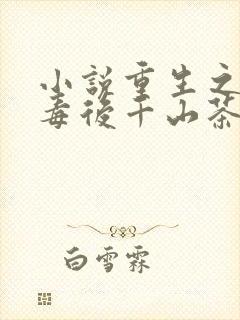 小說重生之
毒後千山茶
白雪霖